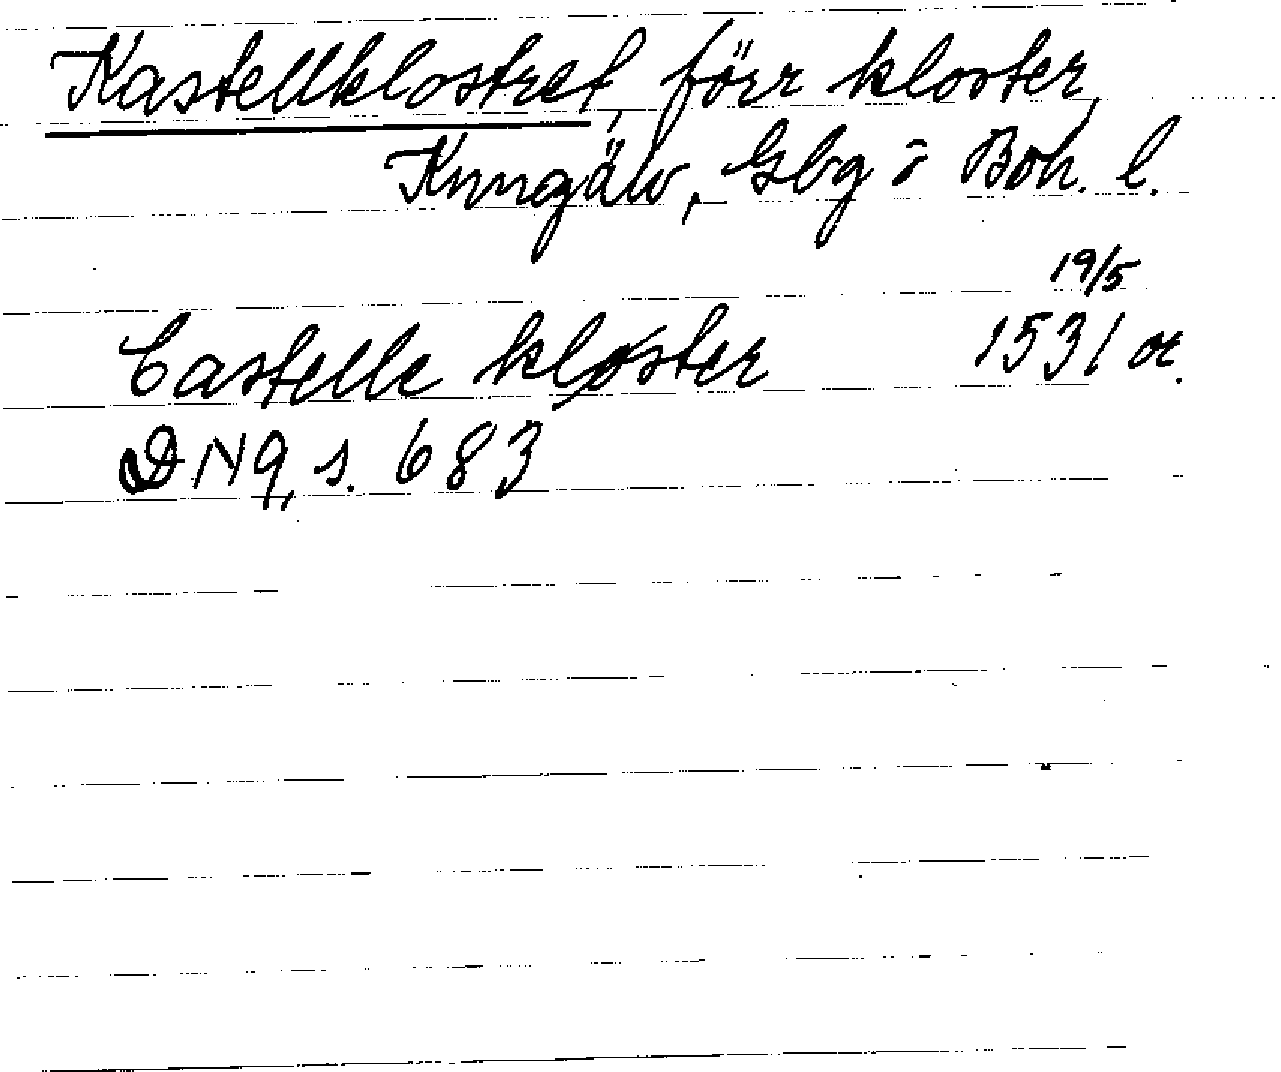 Kastellklostret, förr kloster,
Kungälv, Gbg o Boh. l.
19/5
Castelle kløster 1531 or.
DN 9, s. 683